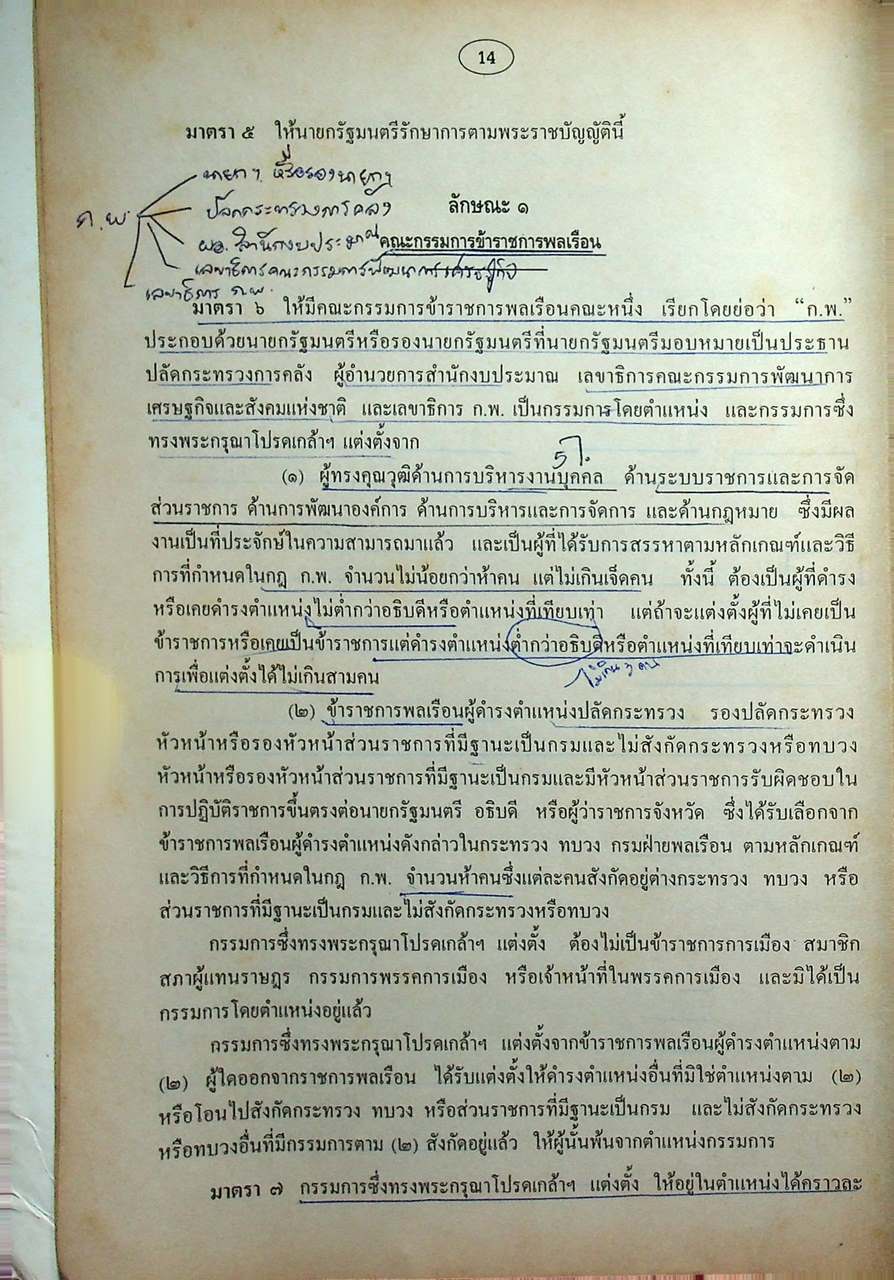 14
มาตรา ๕ ให้นายกรัฐมนตรีรักษาการตามพระราชบัญญัตินี้
นายกฯ หรือรองนายกฯ
ปลัดกระทรวงการคลัง
ลักษณะ ๑
ก.พ.
ผอ. สำนักงบประมาณ
คณะกรรมการข้าราชการพลเรือน
เลขาธิการคณะกรรมการพัฒนาการเศรษฐกิจ
เลขาธิการ ก.พ.
มาตรา ๖ ให้มีคณะกรรมการข้าราชการพลเรือนคณะหนึ่ง เรียกโดยย่อว่า “ก.พ.”
ประกอบด้วยนายกรัฐมนตรีหรือรองนายกรัฐมนตรีที่นายกรัฐมนตรีมอบหมายเป็นประธาน
ปลัดกระทรวงการคลัง ผู้อำนวยการสำนักงบประมาณ เลขาธิการคณะกรรมการพัฒนาการ
เศรษฐกิจและสังคมแห่งชาติ และเลขาธิการ ก.พ. เป็นกรรมการโดยตำแหน่ง และกรรมการซึ่ง
ทรงพระกรุณาโปรดเกล้าฯ แต่งตั้งจาก
(๑) ผู้ทรงคุณวุฒิด้านการบริหารงานบุคคล ด้านระบบราชการและการจัด
ส่วนราชการ ด้านการพัฒนาองค์การ ด้านการบริหารและการจัดการ และด้านกฎหมาย ซึ่งมีผล
งานเป็นที่ประจักษ์ในความสามารถมาแล้ว และเป็นผู้ที่ได้รับการสรรหาตามหลักเกณฑ์และวิธี
การที่กำหนดในกฎ ก.พ. จำนวนไม่น้อยกว่าห้าคน แต่ไม่เกินเจ็ดคน ทั้งนี้ ต้องเป็นผู้ที่ดำรง
หรือเคยดำรงตำแหน่งไม่ต่ำกว่าอธิบดีหรือตำแหน่งที่เทียบเท่า แต่ถ้าจะแต่งตั้งผู้ที่ไม่เคยเป็น
ข้าราชการหรือเคยเป็นข้าราชการแต่ดำรงตำแหน่งต่ำกว่าอธิบดีหรือตำแหน่งที่เทียบเท่าจะดำเนิน
การเพื่อแต่งตั้งได้ไม่เกินสามคน
ไม่เกิน ๓ คน
(๒) ข้าราชการพลเรือนผู้ดำรงตำแหน่งปลัดกระทรวง รองปลัดกระทรวง
หัวหน้าหรือรองหัวหน้าส่วนราชการที่มีฐานะเป็นกรมและไม่สังกัดกระทรวงหรือทบวง
หัวหน้าหรือรองหัวหน้าส่วนราชการที่มีฐานะเป็นกรมและมีหัวหน้าส่วนราชการรับผิดชอบใน
การปฏิบัติราชการขึ้นตรงต่อนายกรัฐมนตรี อธิบดี หรือผู้ว่าราชการจังหวัด ซึ่งได้รับเลือกจาก
ข้าราชการพลเรือนผู้ดำรงตำแหน่งดังกล่าวในกระทรวง ทบวง กรมฝ่ายพลเรือน ตามหลักเกณฑ์
และวิธีการที่กำหนดในกฎ ก.พ. จำนวนห้าคนซึ่งแต่ละคนสังกัดอยู่ต่างกระทรวง ทบวง หรือ
ส่วนราชการที่มีฐานะเป็นกรมและไม่สังกัดกระทรวงหรือทบวง
กรรมการซึ่งทรงพระกรุณาโปรดเกล้าฯ แต่งตั้ง ต้องไม่เป็นข้าราชการการเมือง สมาชิก
สภาผู้แทนราษฎร กรรมการพรรคการเมือง หรือเจ้าหน้าที่ในพรรคการเมือง และมิได้เป็น
กรรมการโดยตำแหน่งอยู่แล้ว
กรรมการซึ่งทรงพระกรุณาโปรดเกล้าฯ แต่งตั้งจากข้าราชการพลเรือนผู้ดำรงตำแหน่งตาม
(๒) ผู้ใดออกจากราชการพลเรือน ได้รับแต่งตั้งให้ดำรงตำแหน่งอื่นที่มิใช่ตำแหน่งตาม (๒)
หรือโอนไปสังกัดกระทรวง ทบวง หรือส่วนราชการที่มีฐานะเป็นกรม และไม่สังกัดกระทรวง
หรือทบวงอื่นที่มีกรรมการตาม (๒) สังกัดอยู่แล้ว ให้ผู้นั้นพ้นจากตำแหน่งกรรมการ
มาตรา ๗ กรรมการซึ่งทรงพระกรุณาโปรดเกล้าฯ แต่งตั้ง ให้อยู่ในตำแหน่งได้คราวละ